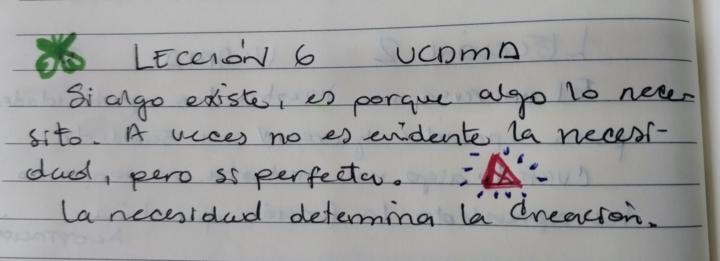 LECCIÓN 6 UCDMA
Si algo existe, es porque algo lo nece-
sito. A veces no es evidente la necesi-
dad, pero sí perfecta.
La necesidad determina la Creación.